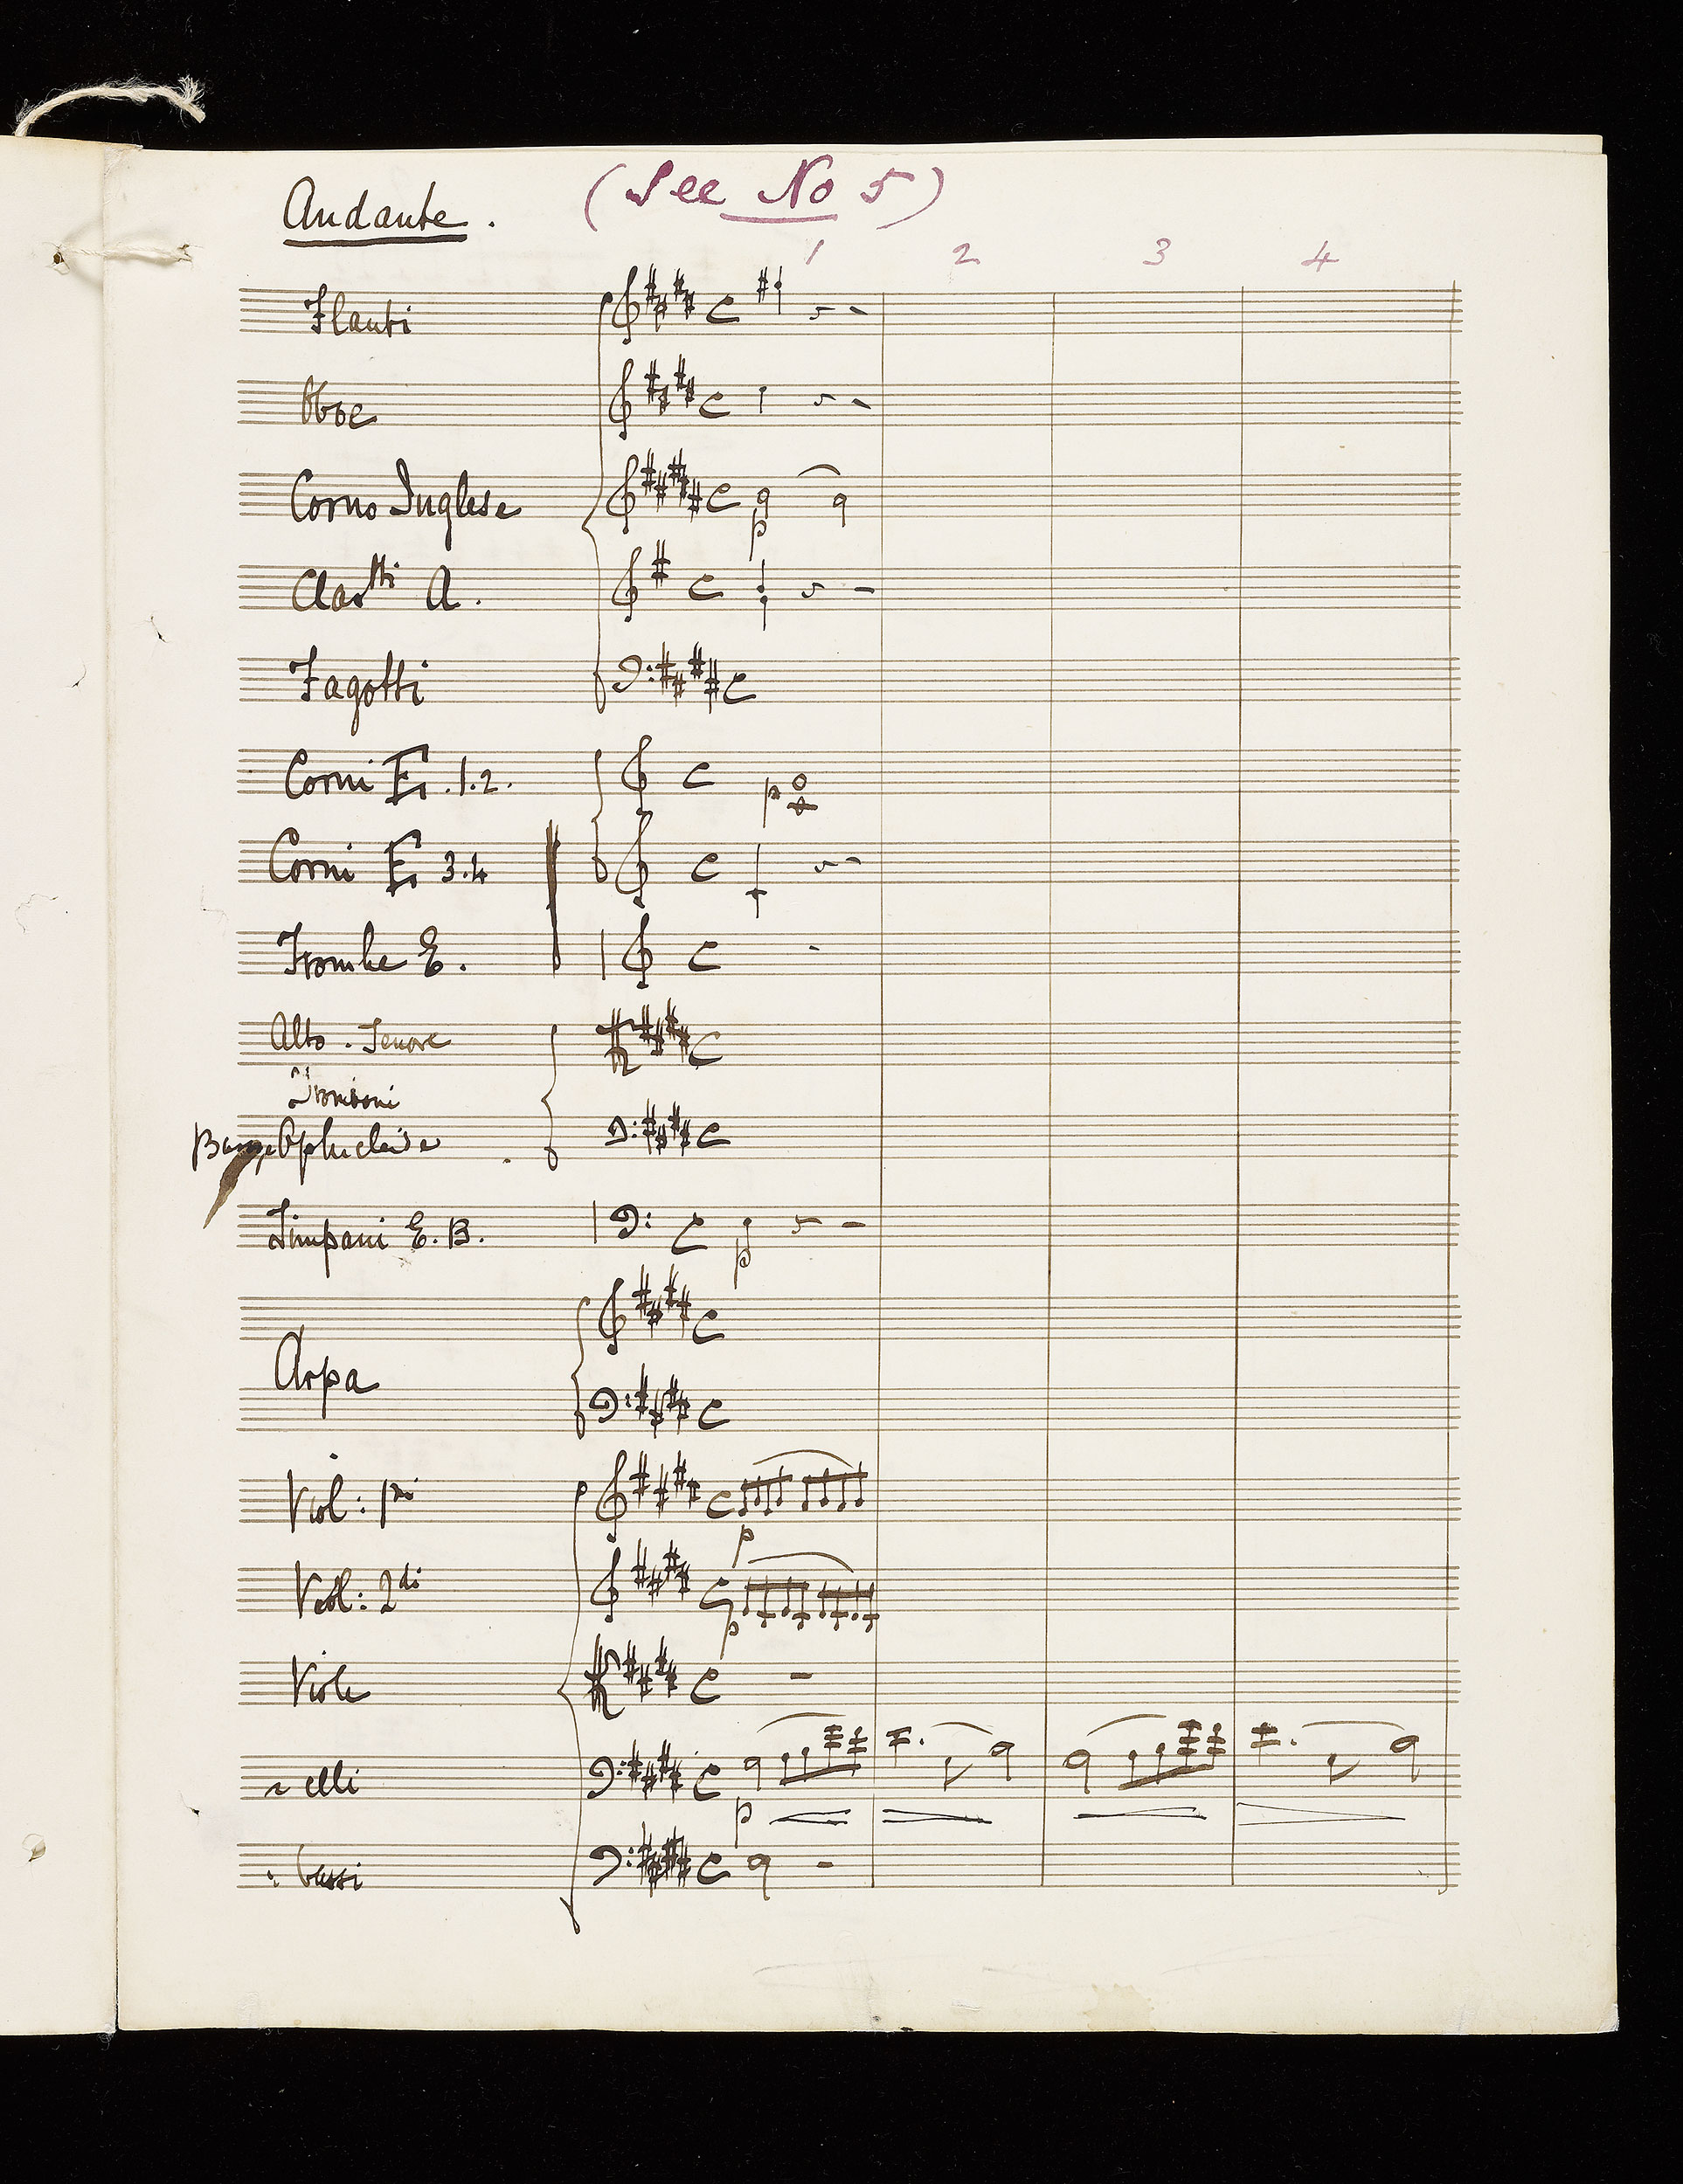 Andante. (See No 5)
1 2 3 4
Flauti
Oboe
Corno Inglese
Clartti A.
Fagotti
Corni E. 1.2.
Corni E 3.4
Trombe E.
Alto. Tenore
Tromboni
Ophicleide
Timpani E. B.
Arpa
Viol: 1mi
Viol: 2di
Viole
elli
bassi